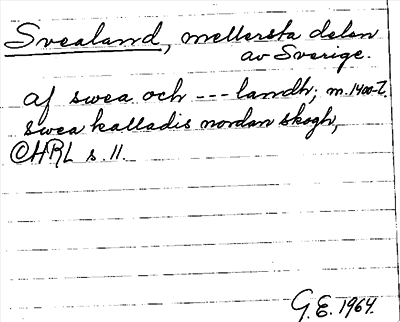 Svealand, mellersta delen
av Sverige.
af swea och --- landh; m. 1400-t.
swea kalladis nordan skogh,
©HRL s. 11.
G.E. 1964.